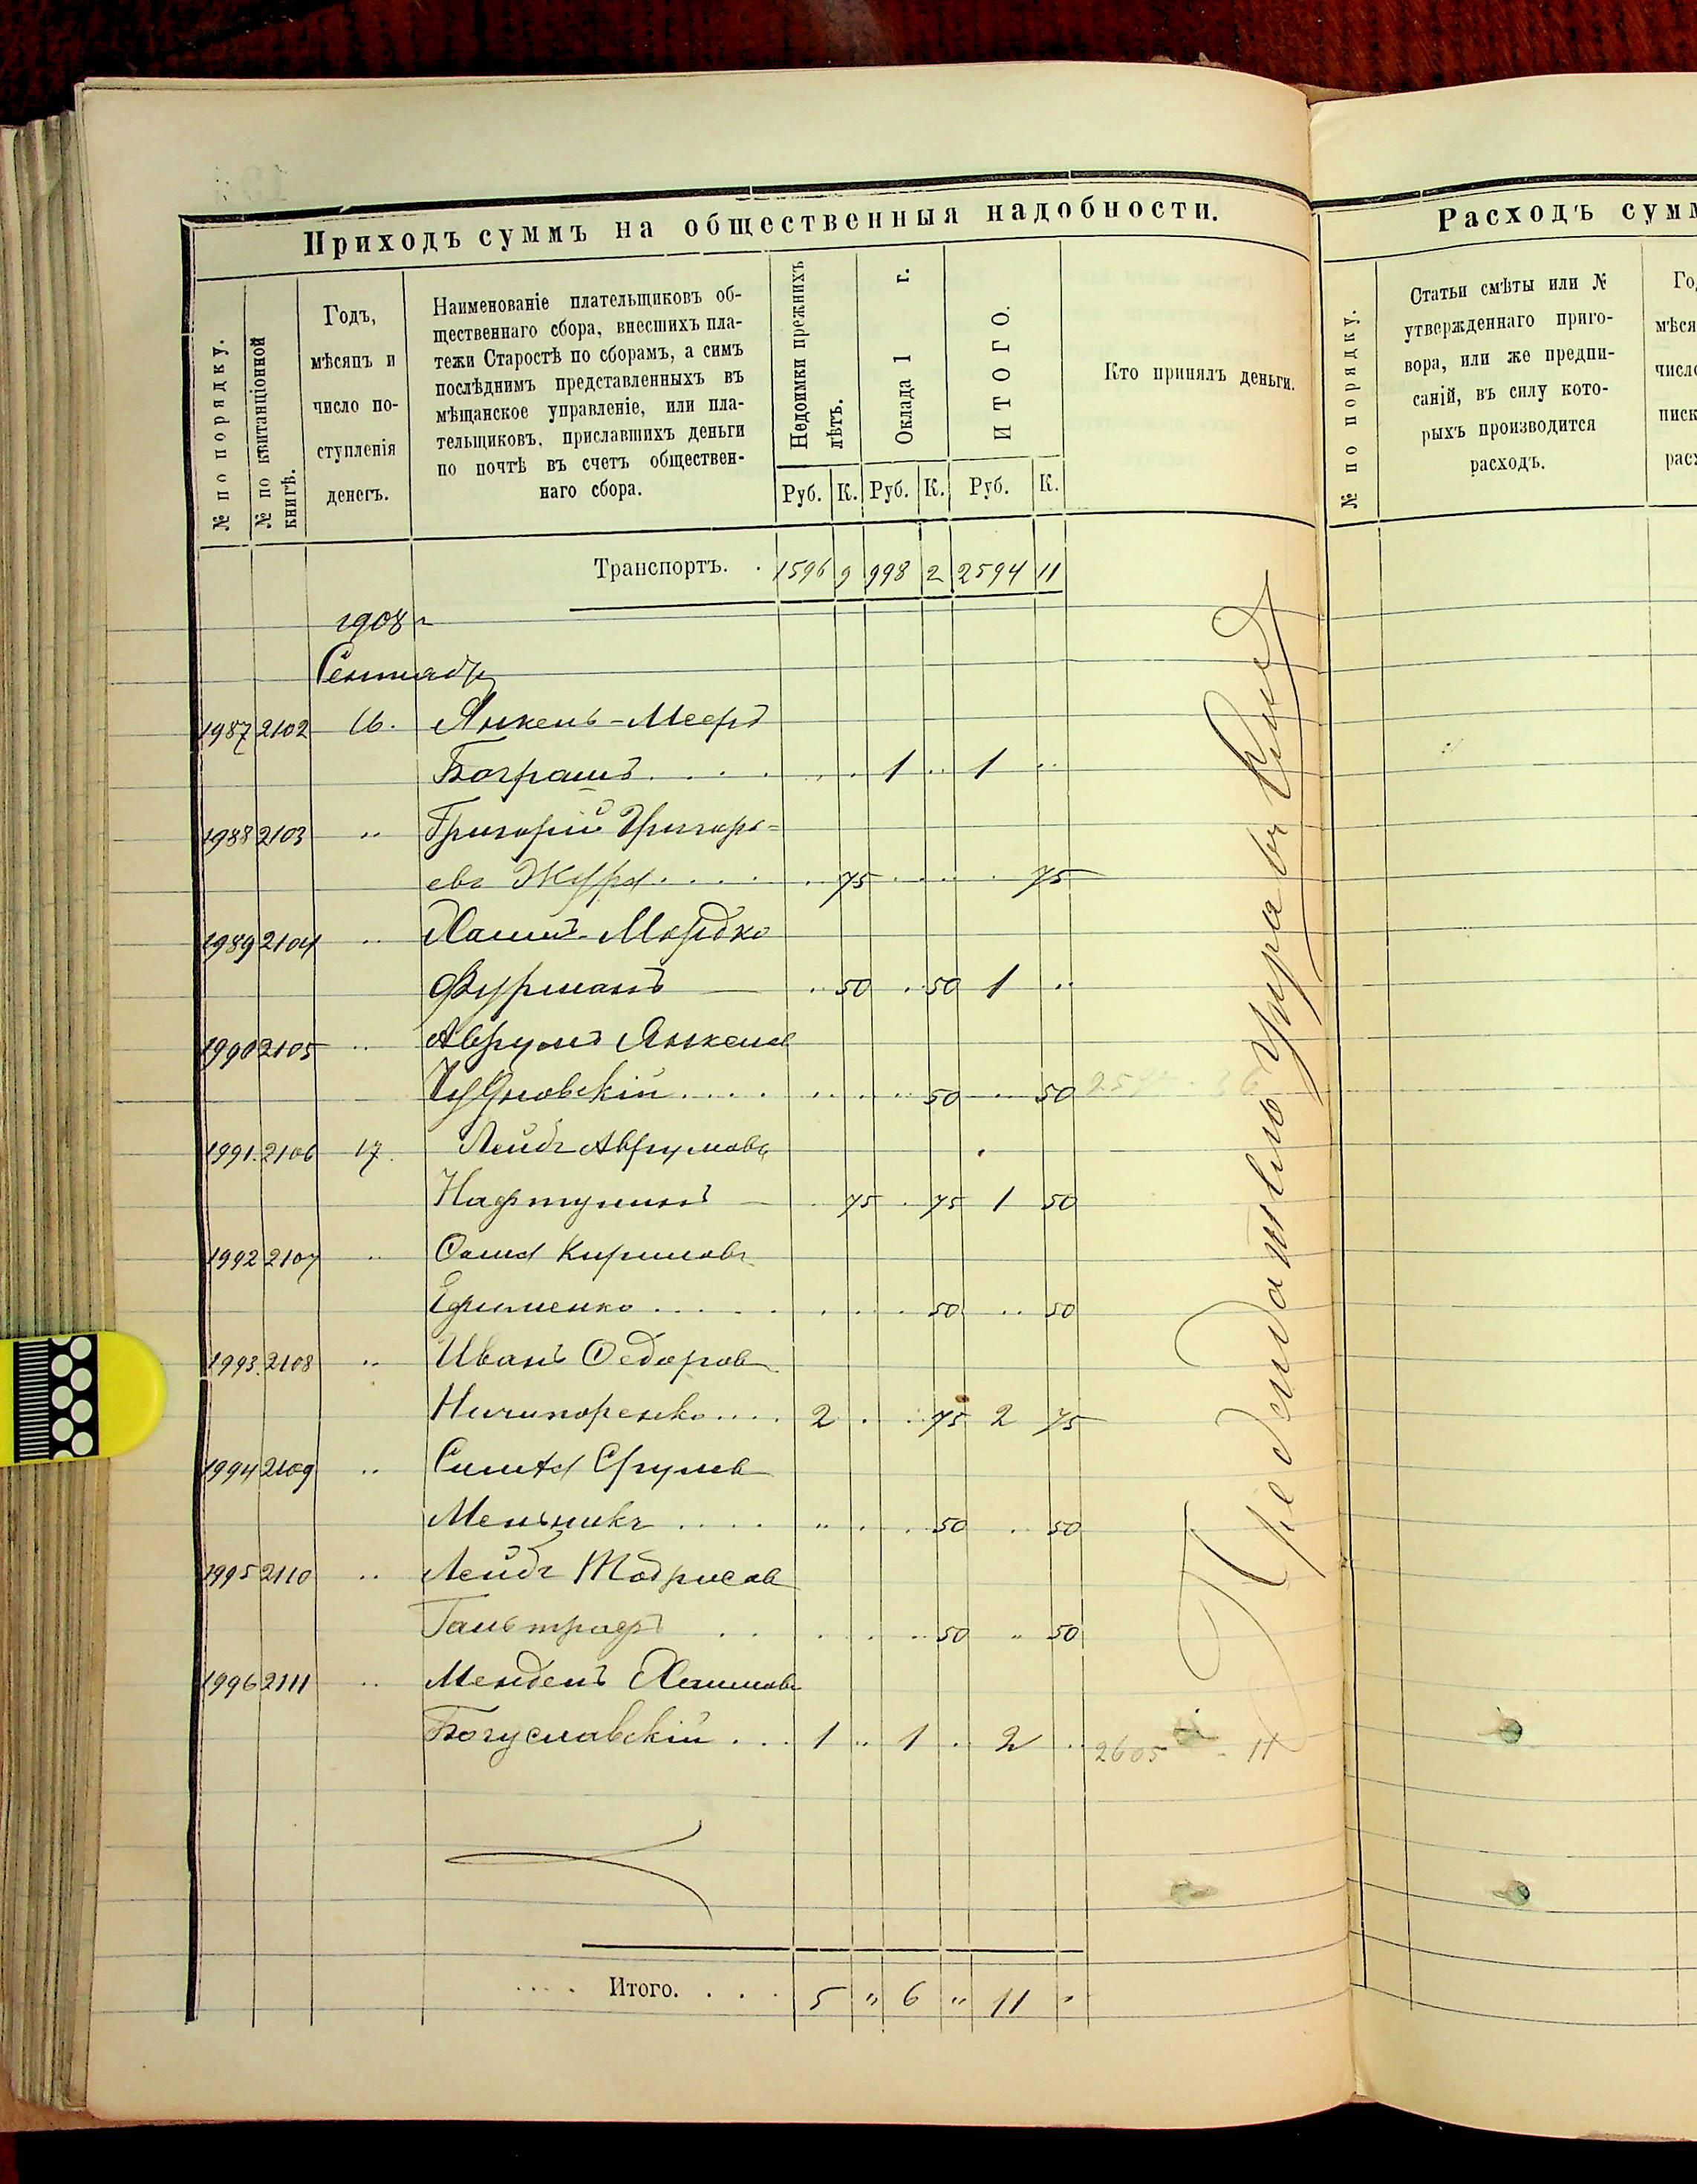 Приходъ суммъ на общественныя надобности.
№ по порядку.
№ по квитанціонной книгѣ.
Годъ,
мѣсяцъ и
число по-
ступленія
денегъ.
Наименованіе плательщиковъ об-
щественнаго сбора, внесшихъ пла-
тежи Старостѣ по сборамъ, а симъ
послѣднимъ представленныхъ въ
мѣщанское управленіе, или пла-
тельщиковъ, приславшихъ деньги
по почтѣ въ счетъ обществен-
наго сбора.
Недоимки прежнихъ
лѣтъ.
Оклада 1 г.
ИТОГО.
Кто принялъ деньги.
Руб. К. Руб. К. Руб. К.
Транспортъ. . 1596 9 998 2 2594 11
1908 г
Сентябр
1987 2102 16. Янкель-Мееръ
Бограшъ . . . . 1 .. 1 ..
1988 2103 .. Григорій Григорь=
евъ Жура . . . . 75 . . . . 75
1989 2104 .. Хаимъ-Мордко
Фурманъ — . 50 . 50 1 ..
1990 2105 .. Аврумъ Янкелев
. . . . 50 .. 50
1991. 2106 17. Лейбъ Аврумовъ
Нафтулинъ — . 75 . 75 1 50
1992 2107 .. Фома Кириловъ
Ефименко . . . . 50 .. 50
1993. 2108 .. Иванъ Федоров
Ничипоренко . . . . 2 . . 75 2 75
1994 2109 .. Срулев
Мельникъ . . . . " . . 50 . 50
1995 2110 .. Лейбъ Тодрисов
. . . . . 50 " 50
1996 2111 .. Мендель Хаимовъ
Богуславскій . . . 1 .. 1 . 2 ..
2605 - 11
Итого. . . . 5 " 6 " 11 "
Расходъ сумм
№ по порядку.
Статьи смѣты или №
утвержденнаго приго-
вора, или же предпи-
саній, въ силу кото-
рыхъ производится
расходъ.
Го
мѣся
число
писк
расх